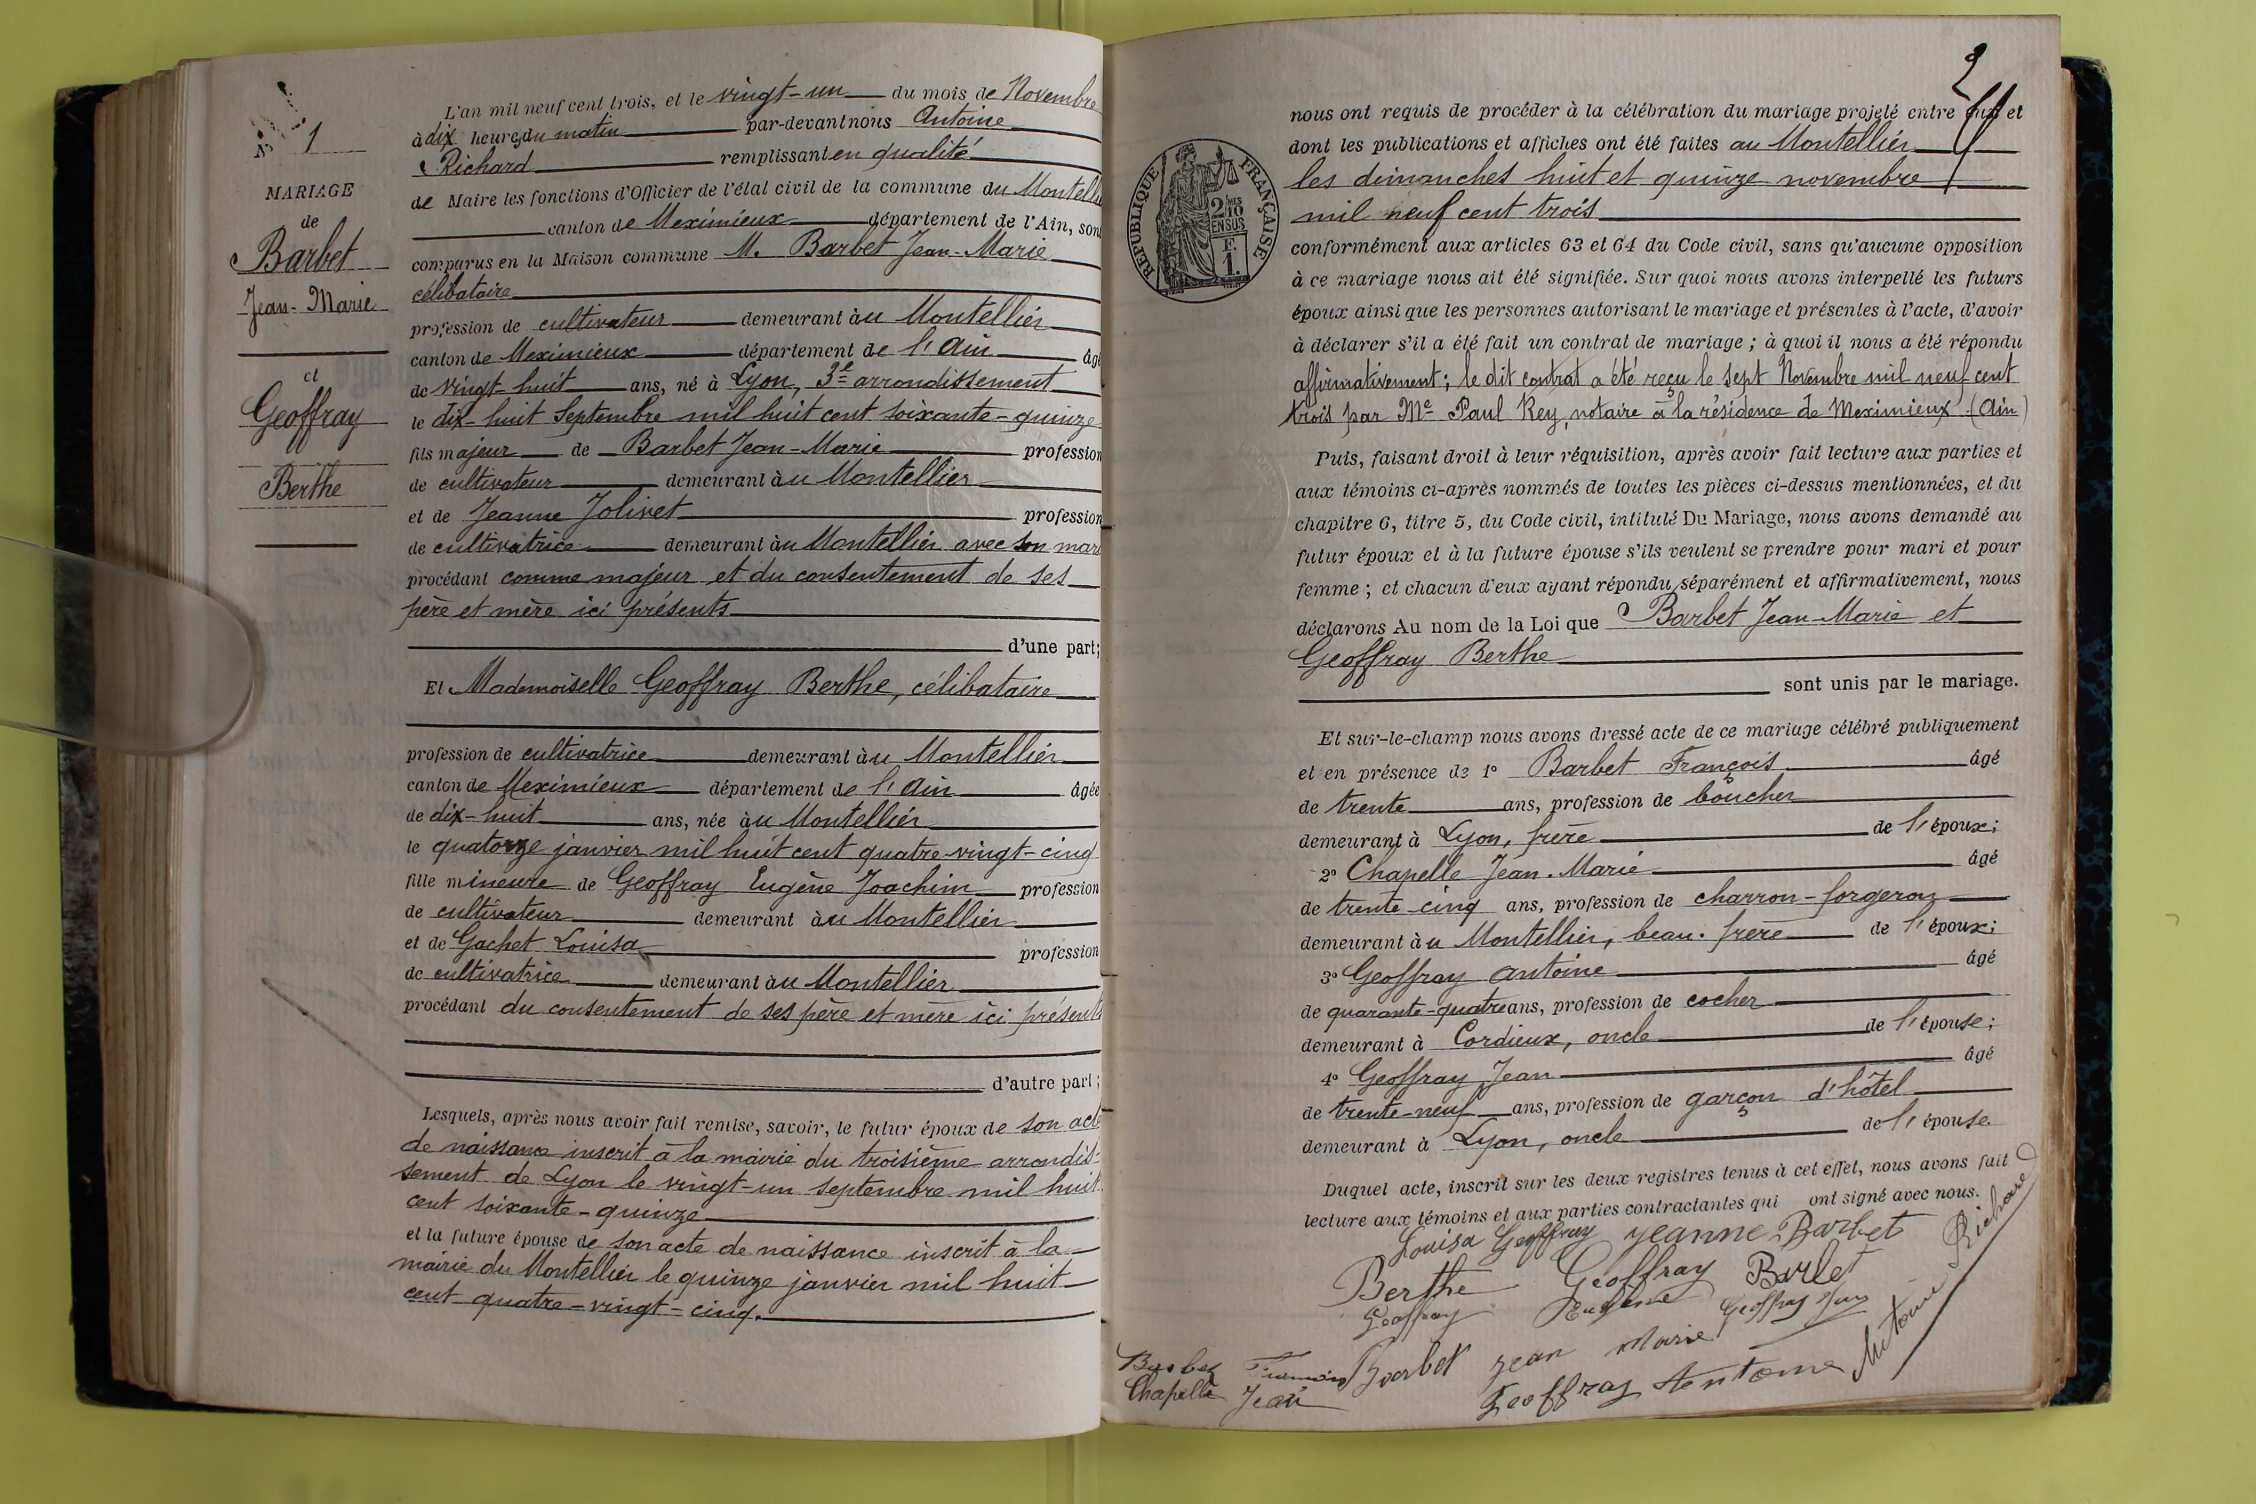 N° 1
MARIAGE
de
Barbet
Jean-Marie
et
Geoffray
Berthe
L'an mil neuf cent trois, et le vingt-un du mois de Novembre
à dix heures du matin par-devant nous Antoine
Richard remplissant en qualité
de Maire les fonctions d'Officier de l'état civil de la commune du Montellier
canton de Meximieux département de l'Ain, sont
comparus en la Maison commune M. Barbet Jean-Marie
célibataire
profession de cultivateur demeurant au Montellier
canton de Meximieux département de l'Ain âgé
de vingt-huit ans, né à Lyon, 3e arrondissement
le dix-huit Septembre mil huit cent soixante-quinze
fils majeur de Barbet Jean-Marie profession
de cultivateur demeurant au Montellier
et de Jeanne Jolivet profession
de cultivatrice demeurant au Montellier avec son mari
procédant comme majeur et du consentement de ses
père et mère ici présents
d'une part;
Et Mademoiselle Geoffray Berthe, célibataire
profession de cultivatrice demeurant au Montellier
canton de Meximieux département de l'Ain âgée
de dix-huit ans, née au Montellier
le quatorze janvier mil huit cent quatre-vingt-cinq
fille mineure de Geoffray Eugène Joachim profession
de cultivateur demeurant au Montellier
et de Gachet Louisa profession
de cultivatrice demeurant au Montellier
procédant du consentement de ses père et mère ici présents
d'autre part;
Lesquels, après nous avoir fait remise, savoir, le futur époux de son acte
de naissance inscrit à la mairie du troisième arrondis-
sement de Lyon le vingt-un septembre mil huit
cent soixante-quinze
et la future épouse de son acte de naissance inscrit à la
mairie du Montellier le quinze janvier mil huit
cent quatre-vingt-cinq.
2
RÉPUBLIQUE FRANÇAISE
2/10 EN SUS
F. 1.
nous ont requis de procéder à la célébration du mariage projeté entre eux et
dont les publications et affiches ont été faites au Montellier
les dimanches huit et quinze novembre
mil neuf cent trois
conformément aux articles 63 et 64 du Code civil, sans qu'aucune opposition
à ce mariage nous ait été signifiée. Sur quoi nous avons interpellé les futurs
époux ainsi que les personnes autorisant le mariage et présentes à l'acte, d'avoir
à déclarer s'il a été fait un contrat de mariage ; à quoi il nous a été répondu
affirmativement ; le dit contrat a été reçu le sept Novembre mil neuf cent
trois par Me Paul Rey, notaire à la résidence de Meximieux (Ain)
Puis, faisant droit à leur réquisition, après avoir fait lecture aux parties et
aux témoins ci-après nommés de toutes les pièces ci-dessus mentionnées, et du
chapitre 6, titre 5, du Code civil, intitulé Du Mariage, nous avons demandé au
futur époux et à la future épouse s'ils veulent se prendre pour mari et pour
femme ; et chacun d'eux ayant répondu séparément et affirmativement, nous
déclarons Au nom de la Loi que Barbet Jean-Marie et
Geoffray Berthe
sont unis par le mariage.
Et sur-le-champ nous avons dressé acte de ce mariage célébré publiquement
et en présence de 1° Barbet François âgé
de trente ans, profession de boucher
demeurant à Lyon, frère de l'époux;
2° Chapelle Jean-Marie âgé
de trente-cinq ans, profession de charron-forgeron
demeurant au Montellier, beau-frère de l'époux;
3° Geoffray Antoine âgé
de quarante-quatre ans, profession de cocher
demeurant à Cordieux, oncle de l'épouse;
4° Geoffray Jean âgé
de trente-neuf ans, profession de garçon d'hôtel
demeurant à Lyon, oncle de l'épouse.
Duquel acte, inscrit sur les deux registres tenus à cet effet, nous avons fait
lecture aux témoins et aux parties contractantes qui ont signé avec nous.
Louisa Geoffray Jeanne Barbet
Berthe Geoffray Barbet
Geoffray Eugène Geoffray Jean
Barbet François Barbet Jean Marie Antoine Richard
Chapelle Jean Geoffray Antoine